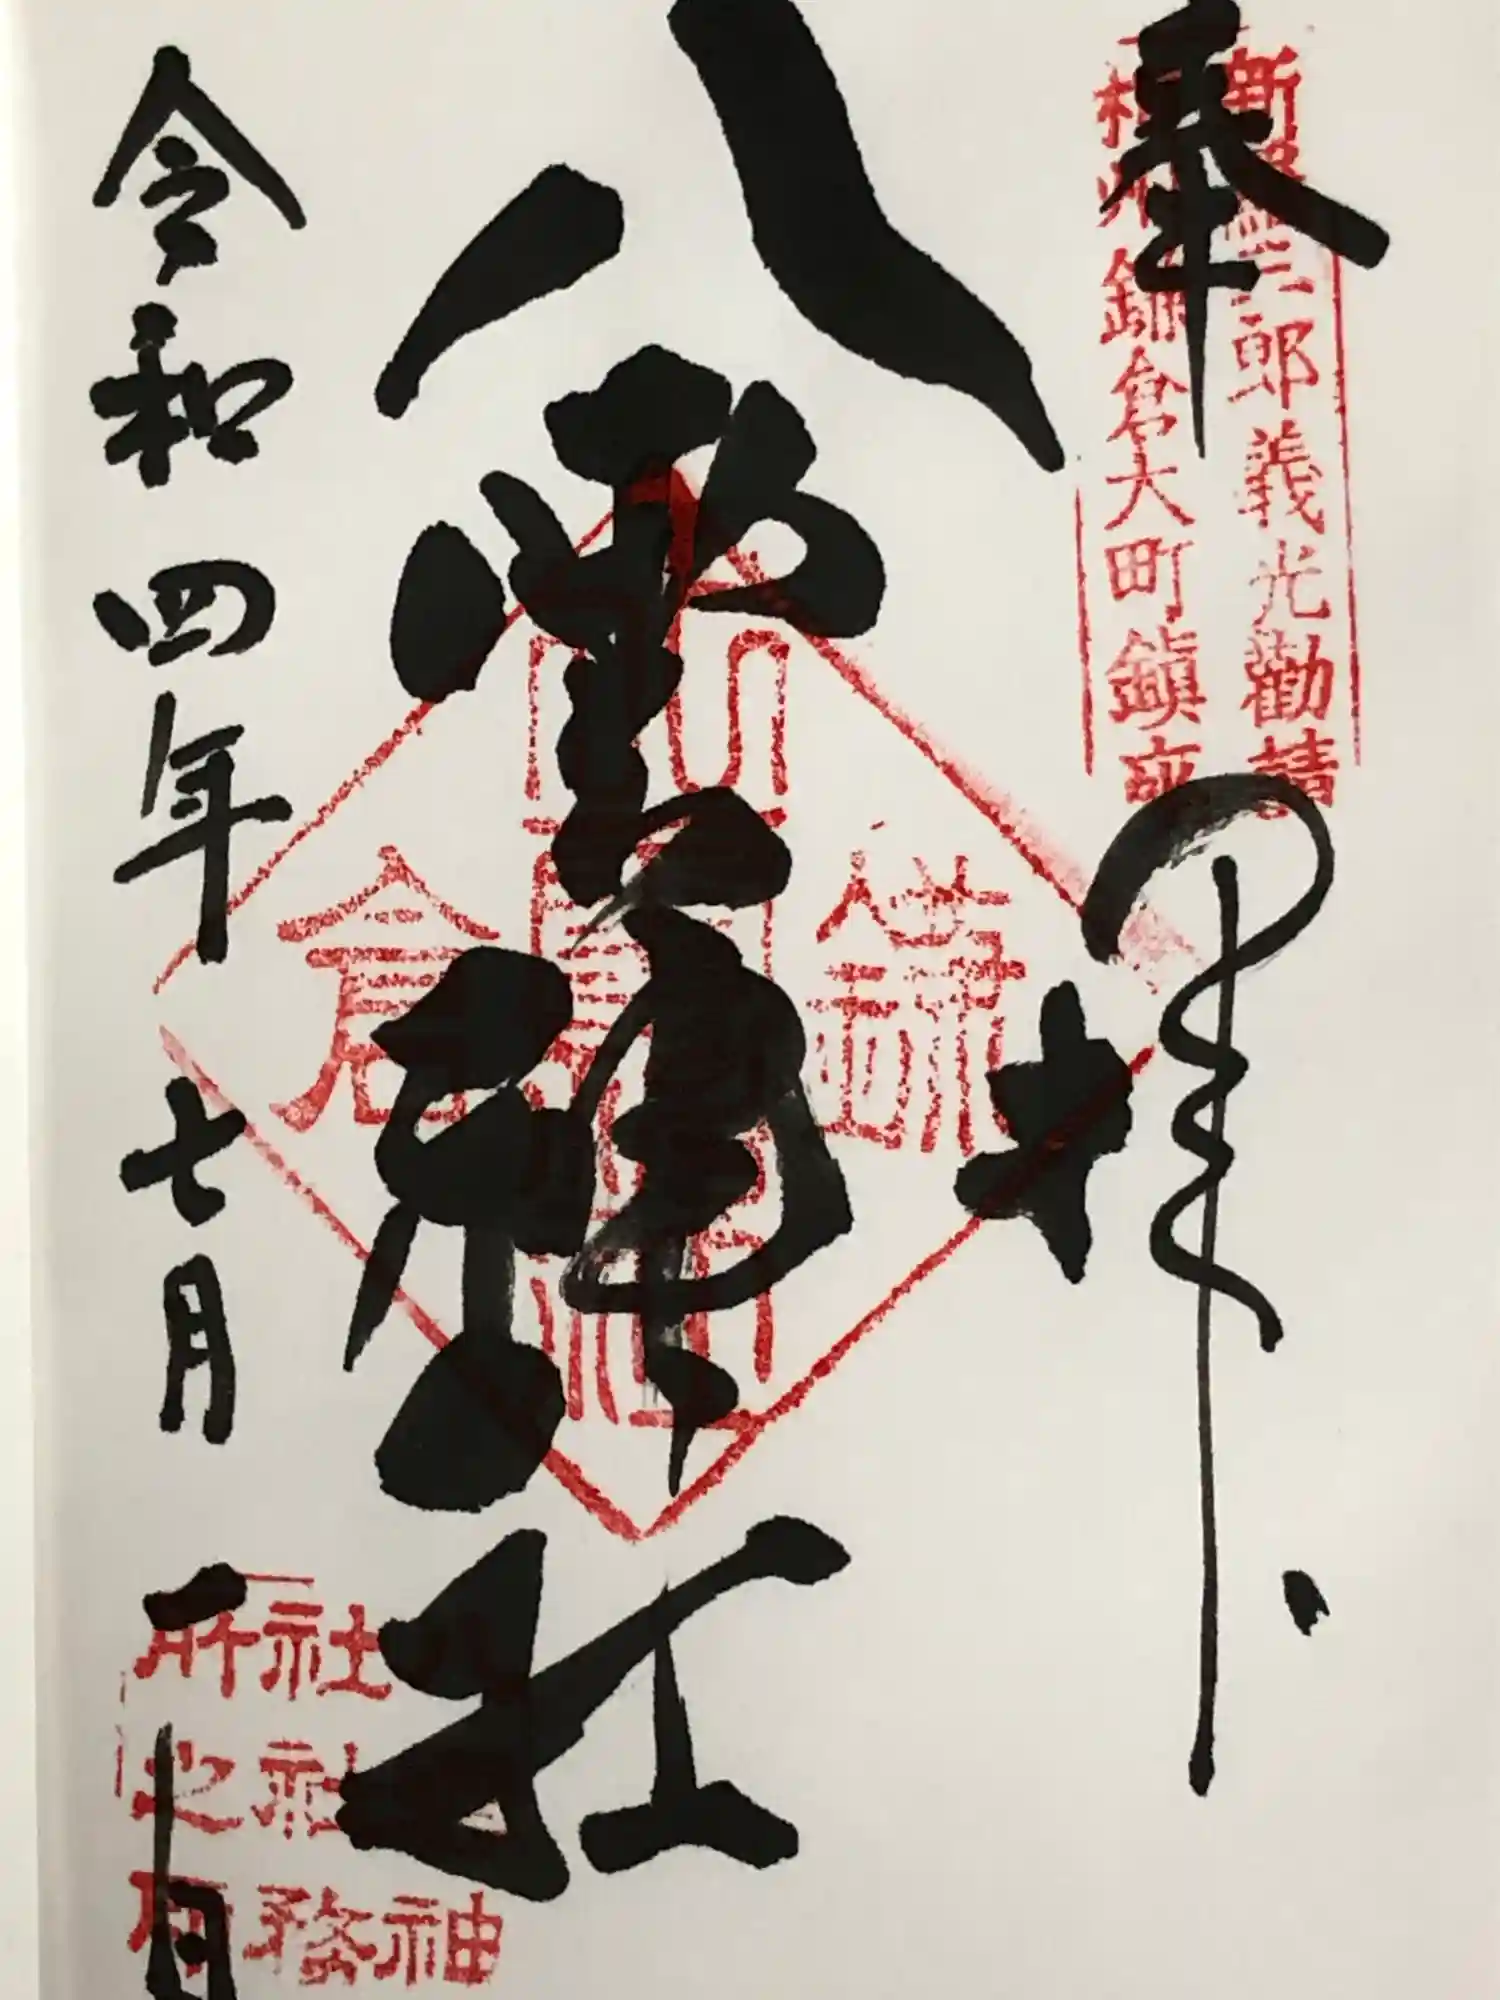 奉拝
新羅三郎義光勧請
相州鎌倉大町鎮座
八雲神社
鎌倉
令和四年七月一日